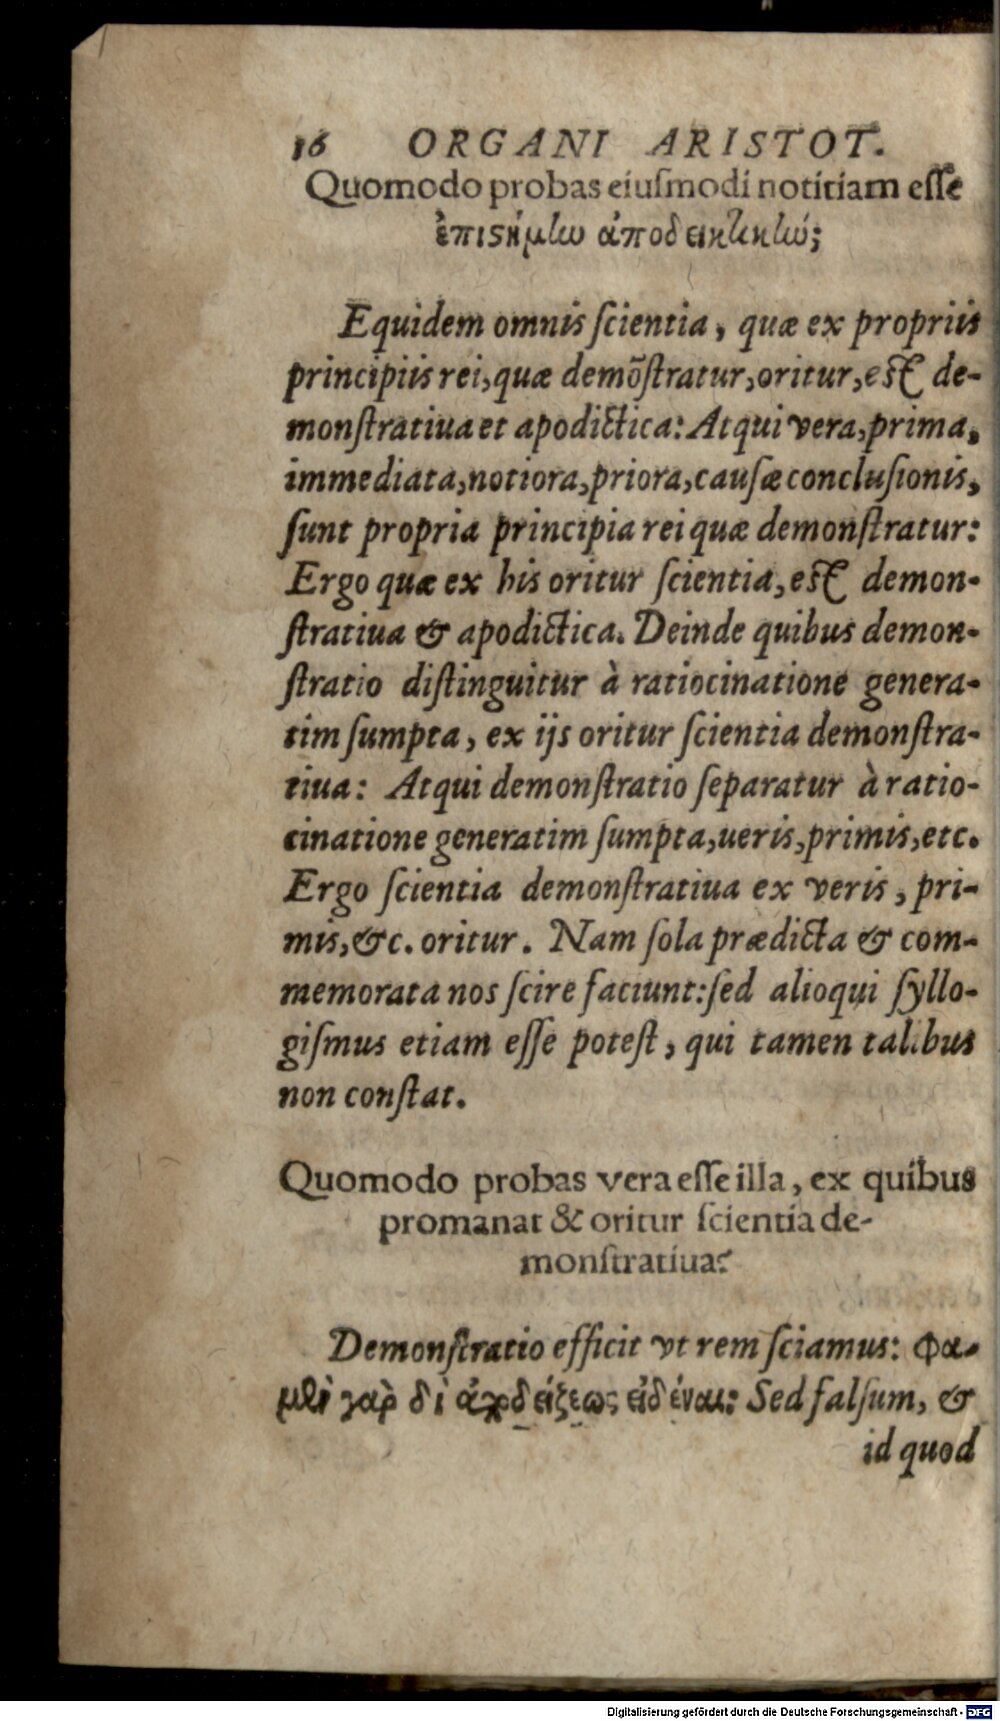 16 ORGANI ARISTOT.
Quomodo probas eiuſmodi notitiam eſſe
ἐπιϛήμἰω ἀποδεικτικἰώ;
Equidem omnis ſcientia, quæ ex propriis
principiis rei, quæ demõſtratur, oritur, eſt de-
monſtratiua et apodictica: Atqui vera, prima,
immediata, notiora, priora, cauſæ concluſionis,
ſunt propria principia rei quæ demonſtratur:
Ergo quæ ex his oritur ſcientia, eſt demon-
ſtratiua & apodictica. Deinde quibus demon-
ſtratio diſtinguitur à ratiocinatione genera-
tim ſumpta, ex ijs oritur ſcientia demonſtra-
tiua: Atqui demonſtratio ſeparatur à ratio-
cinatione generatim ſumpta, ueris, primis, etc.
Ergo ſcientia demonſtratiua ex veris, pri-
mis, &c. oritur. Nam ſola prædicta & com-
memorata nos ſcire faciunt: ſed alioqui ſyllo-
giſmus etiam eſſe poteſt, qui tamen talibus
non conſtat.
Quomodo probas vera eſſe illa, ex quibus
promanat & oritur ſcientia de-
monſtratiua?
Demonſtratio efficit vt rem ſciamus: Φα-
μϑὶ γαρ δι ἀποδείξεως εἰδέναι: Sed falſum, &
id quod
Digitalisierung gefördert durch die Deutsche Forschungsgemeinschaft - DFG